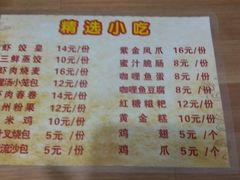 精选小吃
虾饺皇 14元/份
三鲜蒸饺 10元/份
虾肉烧麦 16元/份
灌汤小笼包 12元/份
虾肉春卷 14元/份
州粉果 12元/份
米鸡 10元/份
叉烧包 5元/份
流沙包 5元/份
紫金凤爪 16元/份
蜜汁脆肠 8元/份
咖哩鱼蛋 8元/份
咖哩鱼豆腐 8元/份
红糖糍粑 12元/份
黄金糕 10元/份
鸡翅 5元/个
鸡爪 5元/个